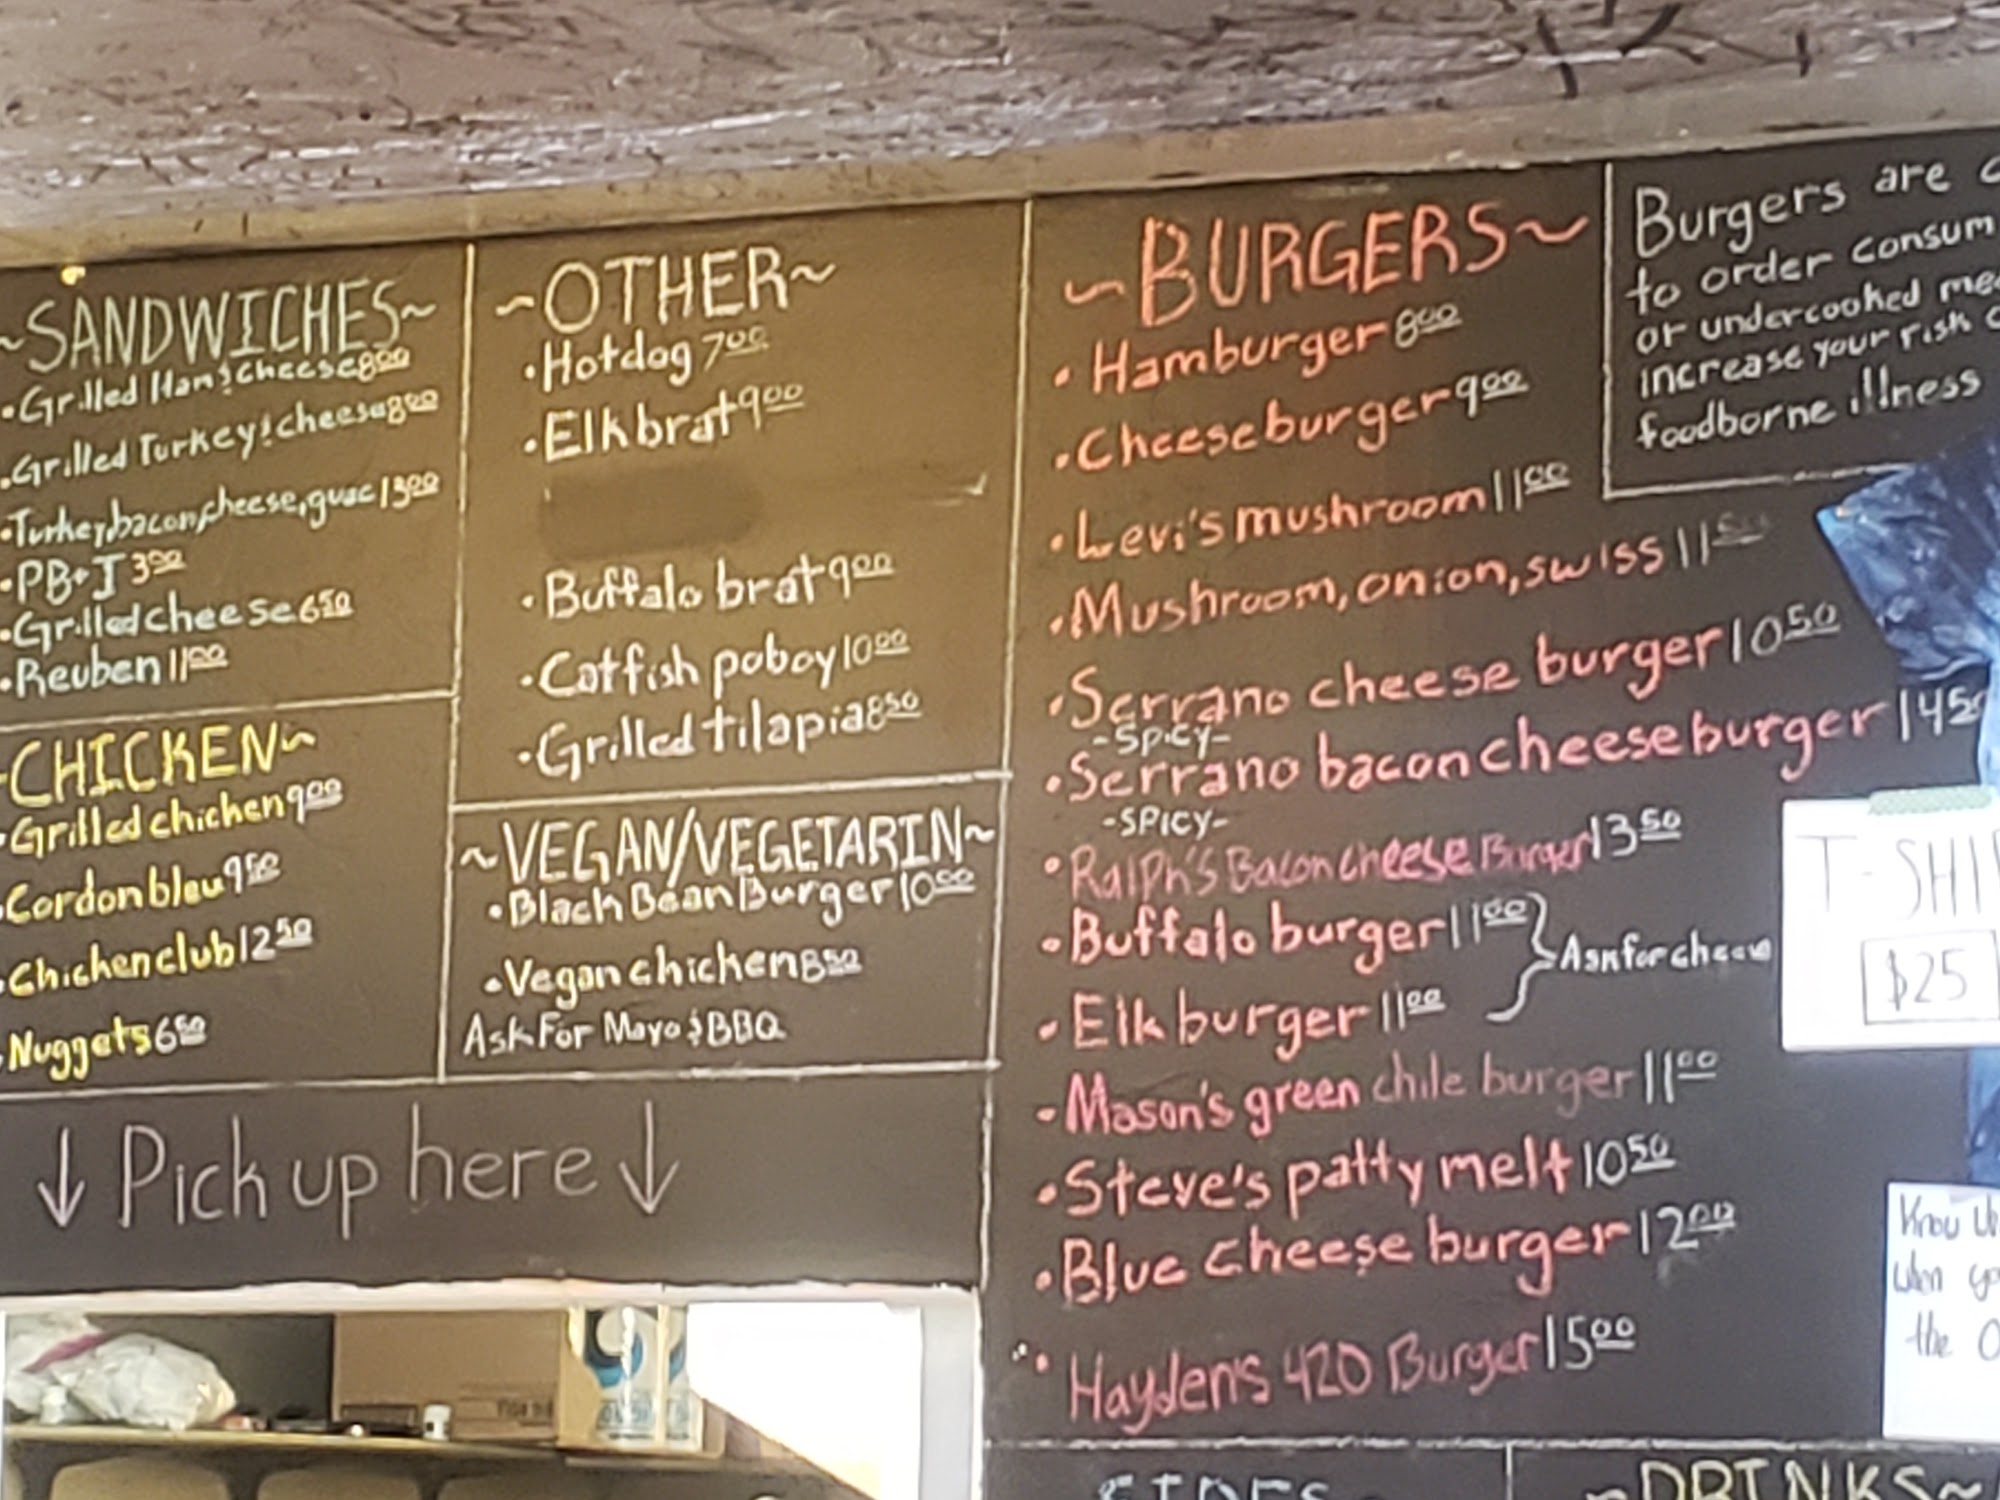 ~SANDWICHES~
•Grilled Ham & cheese 8.00
•Grilled Turkey & cheese 8.00
•Turkey, bacon, cheese, guac 13.00
•PB+J 3.00
•Grilled cheese 6.50
•Reuben 11.00
~CHICKEN~
•Grilled chicken 9.00
•Cordon bleu 9.50
•Chicken club 12.50
•Nuggets 6.50
~OTHER~
•Hotdog 7.00
•Elk brat 9.00
•Buffalo brat 9.00
•Catfish poboy 10.00
•Grilled tilapia 8.50
~VEGAN/VEGETARIN~
•Black Bean Burger 10.00
•Vegan chicken 8.50
Ask For Mayo & BBQ
↓ Pick up here ↓
~BURGERS~
•Hamburger 8.00
•Cheese burger 9.00
•Levi's mushroom 11.00
•Mushroom, onion, swiss 11.50
•Serrano cheese burger 10.50
-SPICY-
•Serrano bacon cheese burger 14.50
-SPICY-
•Ralph's Bacon cheese Burger 13.50
•Buffalo burger 11.00
Ask for cheese
•Elk burger 11.00
•Mason's green chile burger 11.00
•Steve's patty melt 10.50
•Blue cheese burger 12.00
•Hayden's 420 Burger 15.00
Burgers are
to order consum
or undercooked mea
increase your risk
foodborne illness
T-SHI
$25
Know
when yo
the O
SIDES
~DRINKS~